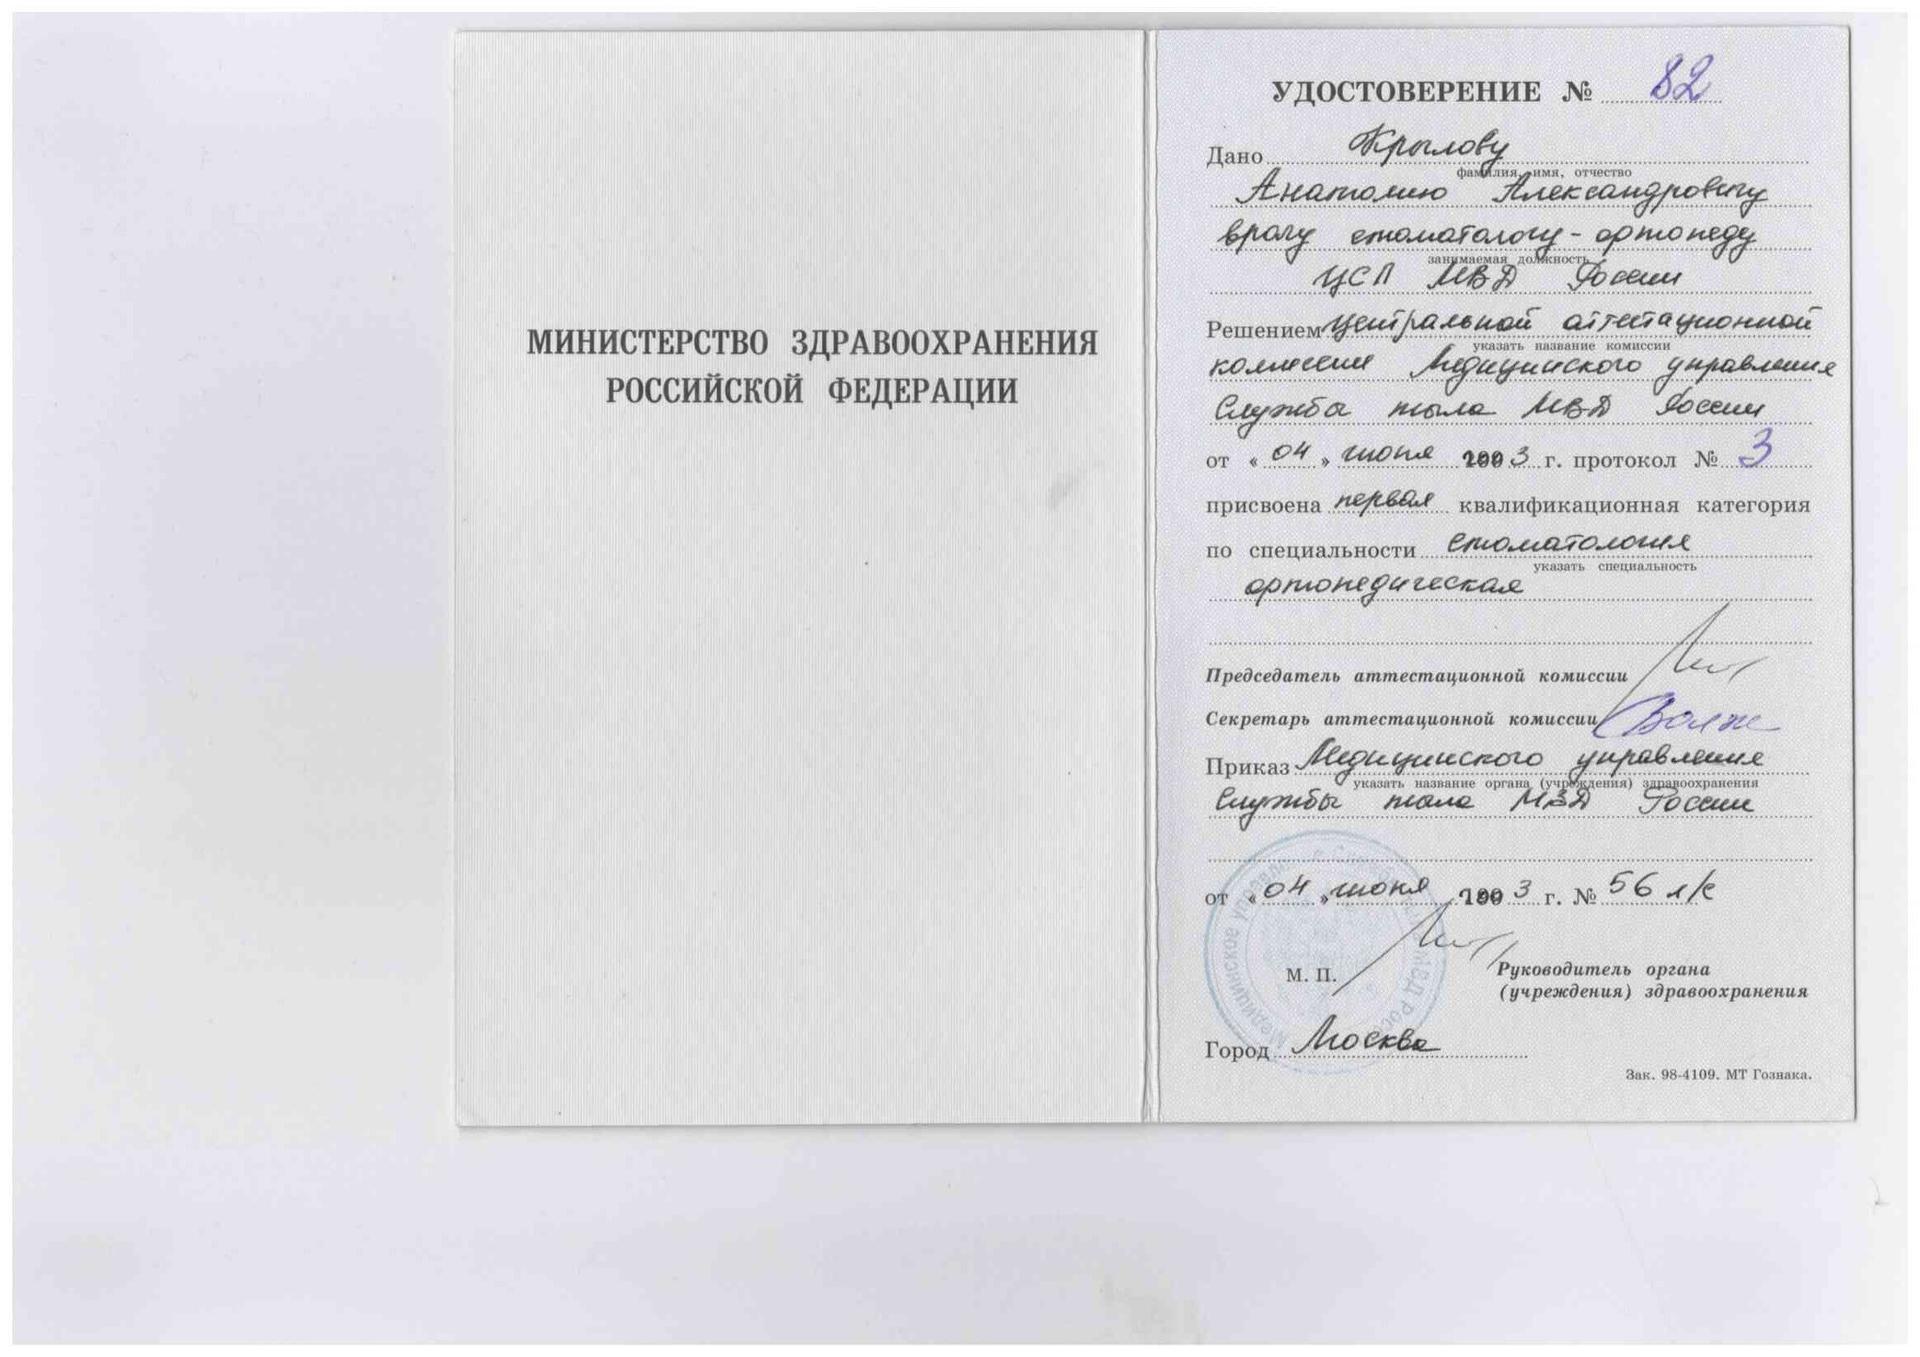 МИНИСТЕРСТВО ЗДРАВООХРАНЕНИЯ
РОССИЙСКОЙ ФЕДЕРАЦИИ
УДОСТОВЕРЕНИЕ № 82
Дано Крылову
фамилия, имя, отчество
Анатолию Александровичу
врачу стоматологу-ортопеду
занимаемая должность
ЦСП МВД России
Решением Центральной аттестационной
указать название комиссии
комиссии Медицинского управления
Службы тыла МВД России
от « 04 » июня 2003 г. протокол № 3
присвоена первая квалификационная категория
по специальности стоматология
указать специальность
ортопедическая
Председатель аттестационной комиссии
Секретарь аттестационной комиссии
Приказ Медицинского управления
указать название органа (учреждения) здравоохранения
Службы тыла МВД России
от « 04 » июня 2003 г. № 56 л/с
М. П.
Руководитель органа
(учреждения) здравоохранения
Город Москва
Зак. 98-4109. МТ Гознака.